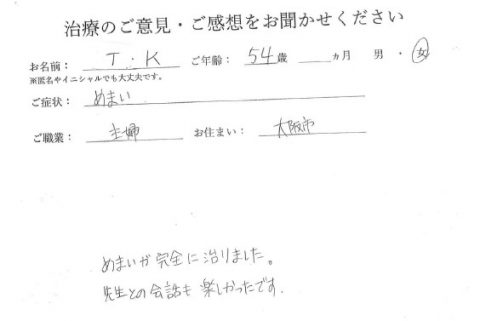 治療のご意見・ご感想をお聞かせください
お名前： T.K ご年齢： 54歳 ヵ月 男・女
※匿名やイニシャルでも大丈夫です。
ご症状： めまい
ご職業： 主婦 お住まい： 大阪市
めまいが完全に治りました。
先生との会話も楽しかったです.